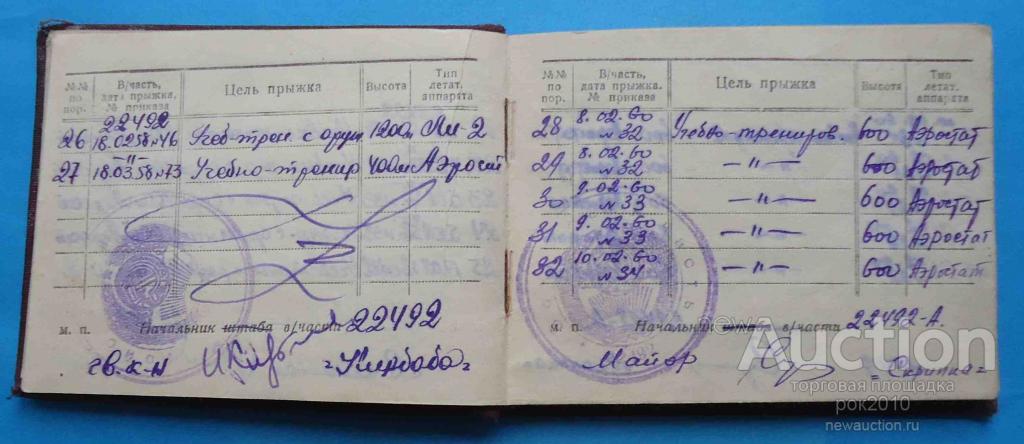 №№ по пор.
В/часть, дата прыжка. № приказа
Цель прыжка
Высота
Тип летат. аппарата
22492
26 18.02.58 №46 Учеб-трен. с оруж 1200м Ли-2
—"—
27 18.03.58 №73 Учебно-тренир 400м Аэростат
м. п. Начальник штаба в/части 22492
гв. к-н =Кирбаба=
№№ по пор.
В/часть, дата прыжка. № приказа
Цель прыжка
Высота
Тип летат. аппарата
28 8.02.60 №32 Учебно-трениров. 600 Аэростат
29 8.02.60 №32 —"— 600 Аэростат
30 9.02.60 №33 —"— 600 Аэростат
31 9.02.60 №33 —"— 600 Аэростат
32 10.02.60 №34 —"— 600 Аэростат
м. п. Начальник штаба в/части 22492-А.
Майор =Скрипка=
New
Auction
торговая площадка
рок2010
newauction.ru